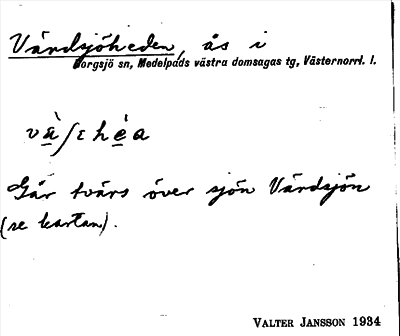 Värdsjöheden, ås i
Borgsjö sn, Medelpads västra domsagas tg, Västernorrl. l.
vä̀ʃɛhè̱a
Går tvärs över sjön Värdsjön
(se kartan).
VALTER JANSSON 1934